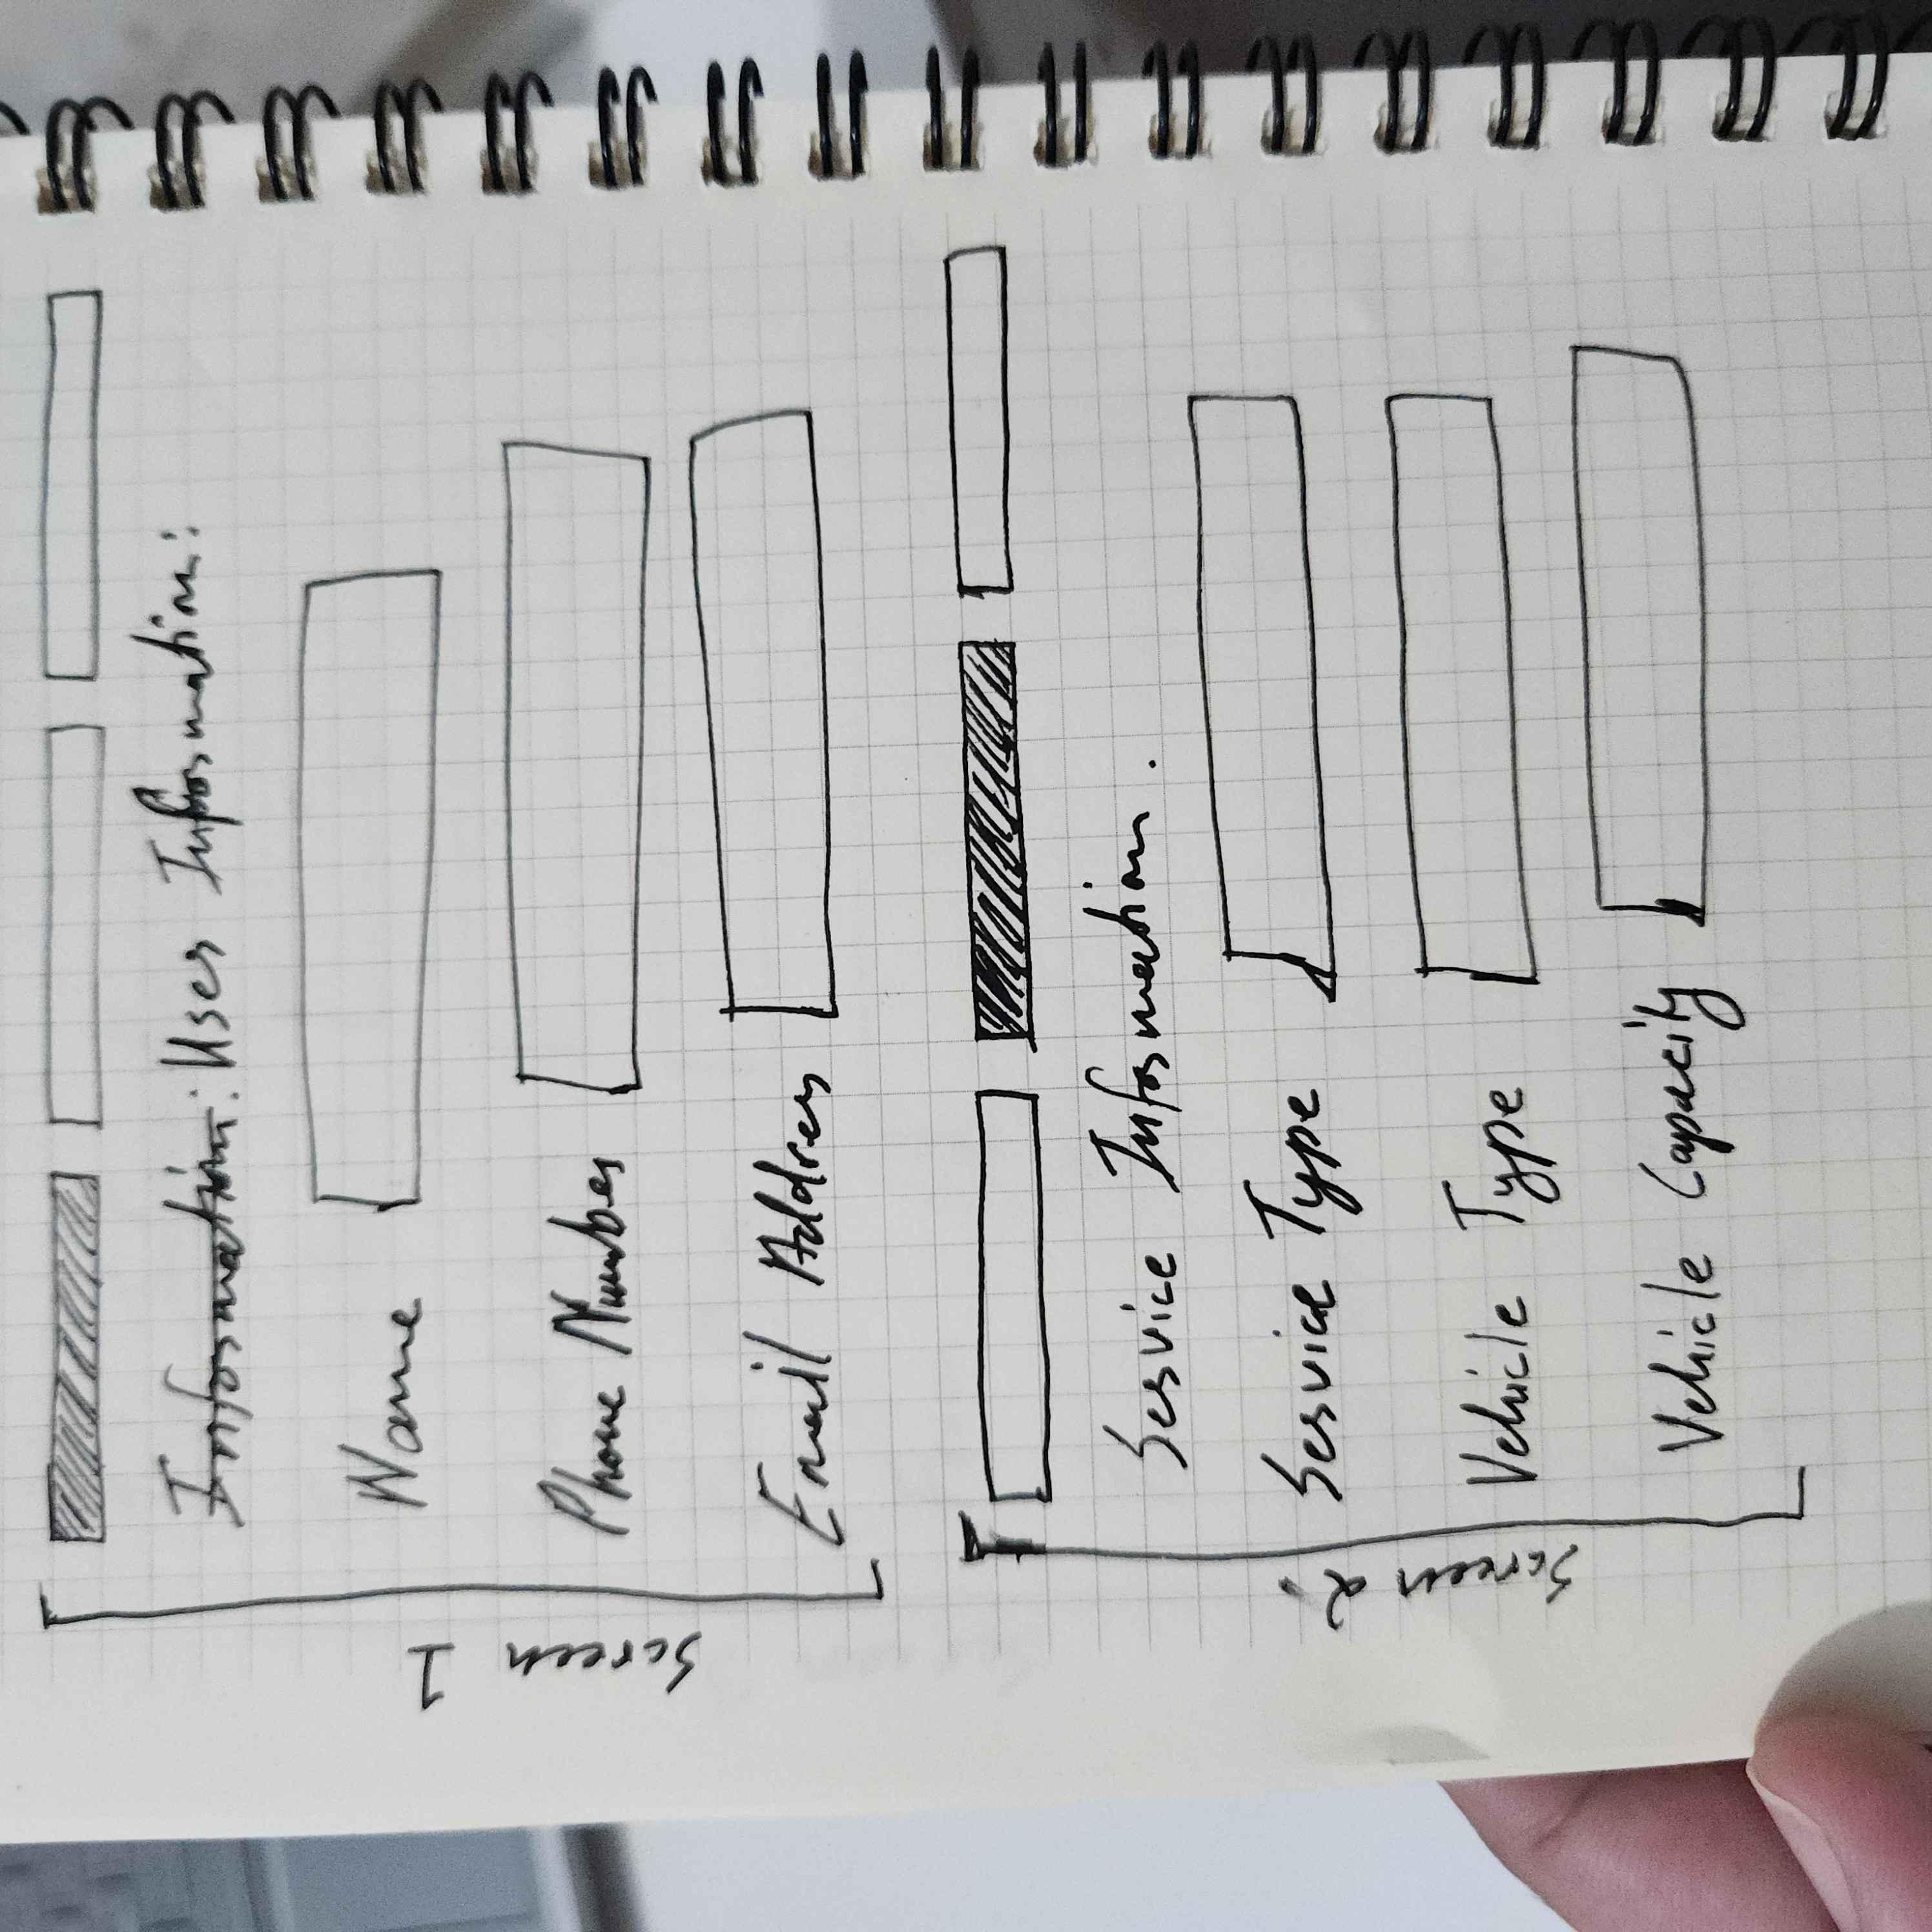 Screen 1
Information: User Information:
Name
Phone Number
Email Address
Screen 2.
Service Information.
Service Type
Vehicle Type
Vehicle Capacity